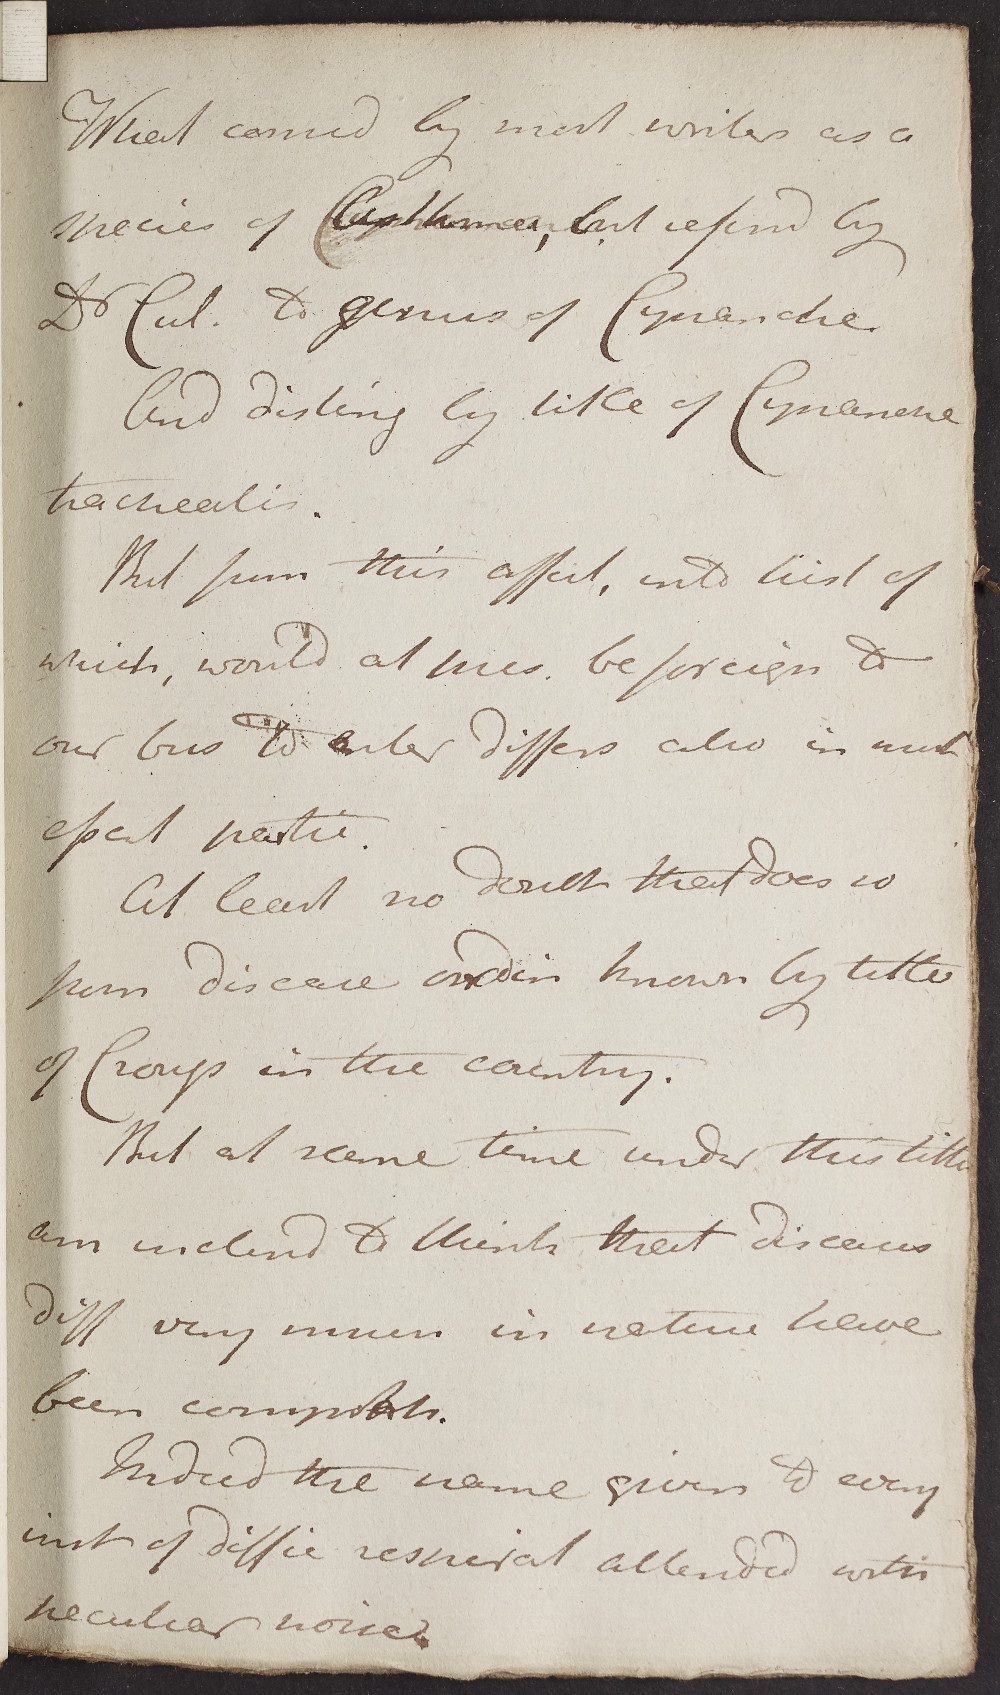 What consid by most writers as a
species of Asthma, but referd by
Dr Cul. to genus of Cynanche
And disting by title of Cynanche
trachealis.
But from this affect, into hist of
which, would at pres. be foreign to
our bus to enter differs also in most
essent partic.
At least no doubt that does so
from disease ordin known by title
of Croup in the country.
But at same time under this title
am inclind to think that diseases
diff very much in nature have
been compreh.
Indeed the name given to every
inst of diffic respirat attended with
peculiar noise.